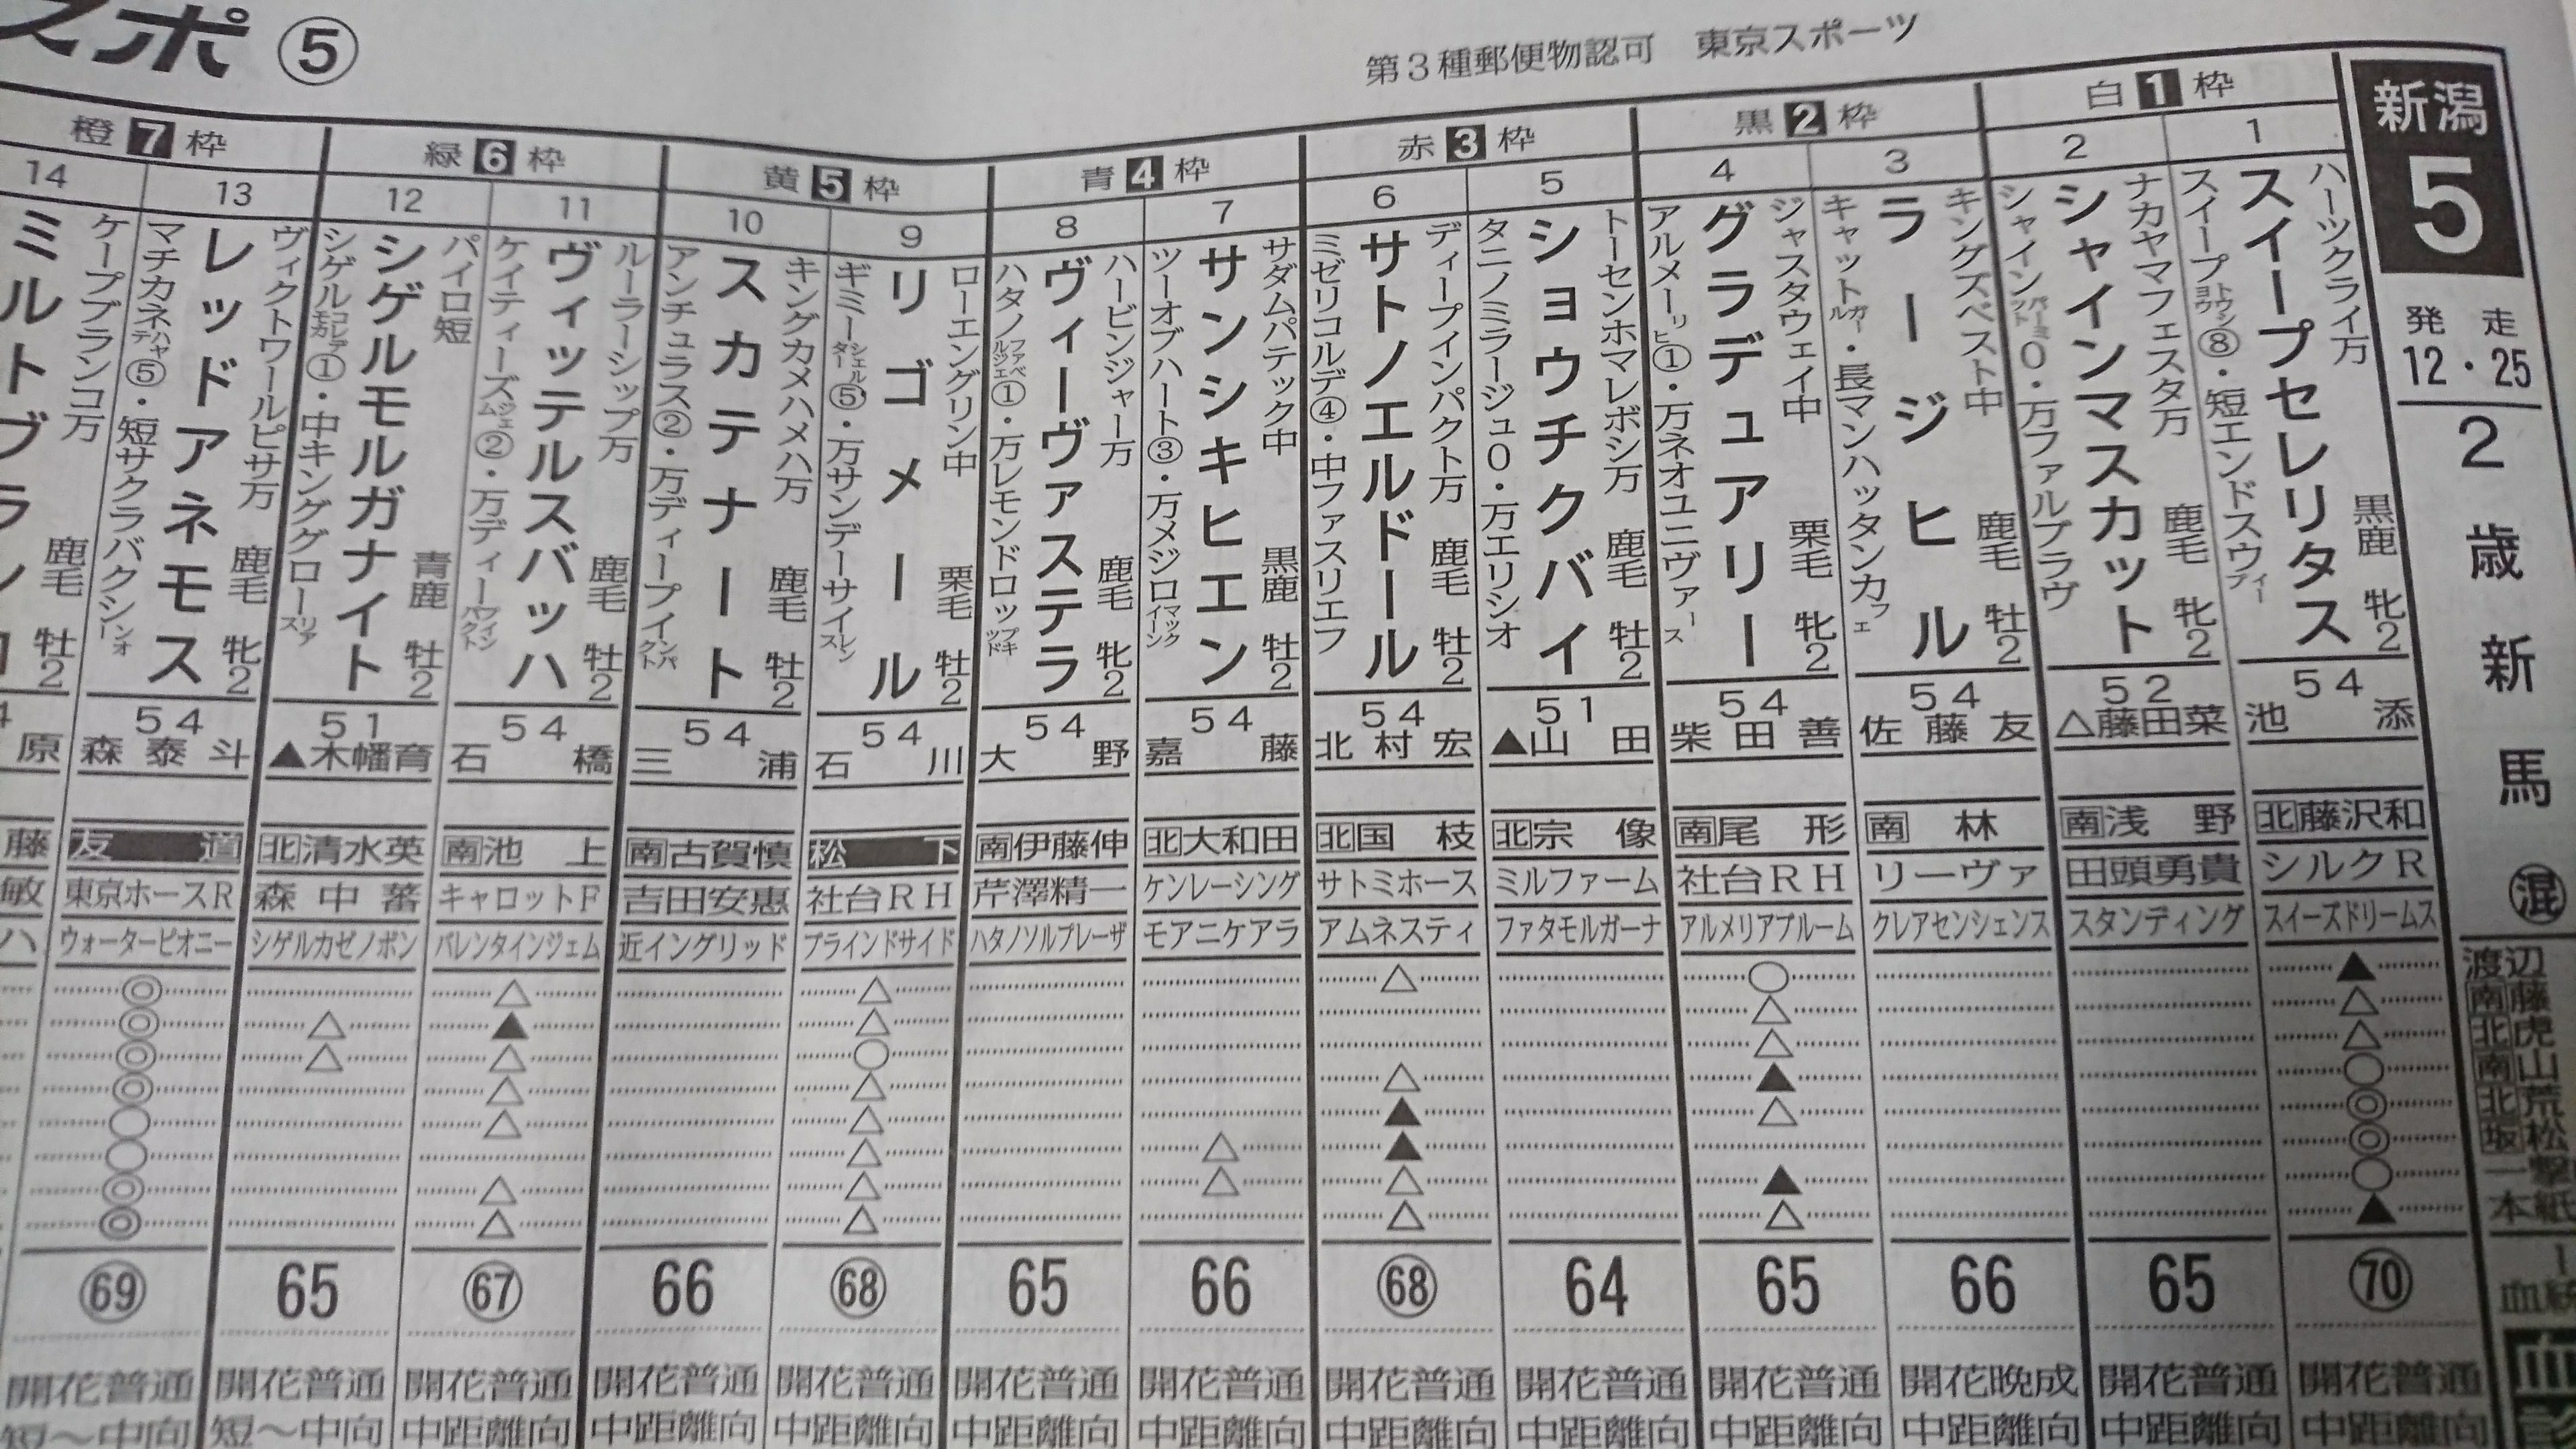 スポ ⑤
第3種郵便物認可　東京スポーツ
新潟
5
発走
12・25
2歳新馬
混
渡辺
南藤
北虎
南山
北荒
坂松
一撃
本紙
白1枠
1
ハーツクライ万
スイープセレリタス
スイープトウショウ⑧・短エンドスウィープ
黒鹿 牝2
54
池添
北藤沢和
シルクR
スイーズドリームス
▲
△
△
○
◎
◎
○
▲
70
開花普通
中距離向
2
ナカヤマフェスタ万
シャインマスカット
鹿毛 牝2
52
△藤田菜
南浅野
田頭勇貴
スタンディング
65
開花普通
中距離向
黒2枠
3
キングズベスト中
ラージヒル
鹿毛 牡2
54
佐藤友
南林
リーヴァ
クレアセンシェンス
66
開花晩成
中距離向
4
ジャスタウェイ中
グラデュアリー
アルメーリヒ①・万ネオユニヴァース
栗毛 牝2
54
柴田善
南尾形
社台RH
アルメリアブルーム
○
△
△
▲
△
▲
△
65
開花普通
中距離向
赤3枠
5
トーセンホマレボシ万
ショウチクバイ
タニノミラージュ0・万エリシオ
鹿毛 牡2
51
▲山田
北宗像
ミルファーム
ファタモルガーナ
64
開花普通
中距離向
6
ディープインパクト万
サトノエルドール
ミゼリコルデ④・中ファスリエフ
鹿毛 牡2
54
北村宏
北国枝
サトミホース
アムネスティ
△
△
▲
▲
△
△
68
開花普通
中距離向
青4枠
7
サダムパテック中
サンシキヒエン
ツーオブハート③・万メジロマックイーン
黒鹿 牡2
54
嘉藤
北大和田
ケンレーシング
モアニケアラ
△
△
66
開花普通
中距離向
8
ハービンジャー万
ヴィーヴァステラ
鹿毛 牝2
54
大野
南伊藤伸
芹澤精一
ハタノソルブレーザ
65
開花普通
中距離向
黄5枠
9
ローエングリン中
リゴメール
ギミーシェルター⑤・万サンデーサイレンス
栗毛 牡2
54
石川
松下
社台RH
ブラインドサイド
△
△
○
△
△
△
△
△
68
開花普通
中距離向
10
キングカメハメハ万
スカテナート
アンチュラス②・万ディープインパクト
鹿毛 牡2
54
三浦
南古賀慎
吉田安惠
近イングリッド
66
開花普通
中距離向
緑6枠
11
ルーラーシップ万
ヴィッテルスバッハ
ケイティーズジェム②・万ディープインパクト
鹿毛 牡2
54
石橋
南池上
キャロットF
バレンタインジェム
△
▲
△
△
△
△
△
67
開花普通
中距離向
12
パイロ短
シゲルモルガナイト
青鹿 牡2
51
▲木幡育
北清水英
森中蕃
シゲルカゼノボン
△
△
65
開花普通
短～中向
橙7枠
13
ヴィクトワールピサ万
レッドアネモス
マチカネハヤテ⑤・短サクラバクシンオー
鹿毛 牝2
54
森泰斗
友道
東京ホースR
ウォーターピオニー
◎
◎
◎
◎
○
○
◎
◎
69
開花普通
短～中向
14
ケープブランコ万
鹿毛 牡2
原
藤
敏
ハ